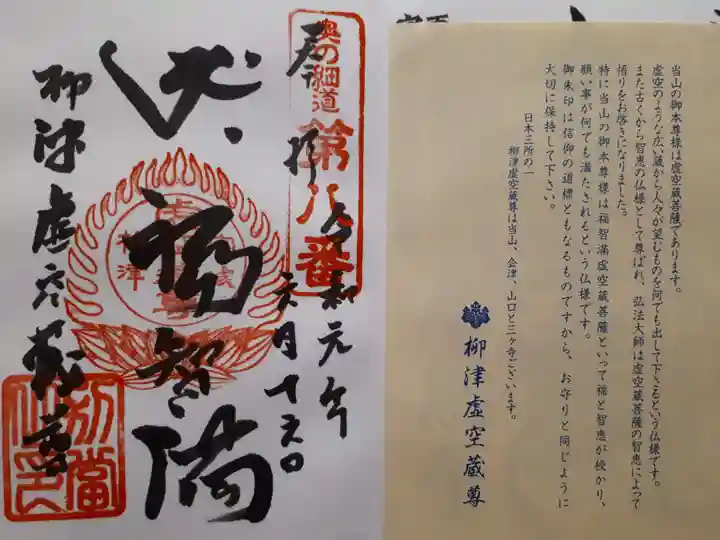 奥の細道
第八番
奉拝
令和元年
六月十六日
福智満
柳津虚空蔵尊
別當
当山の御本尊様は虚空蔵菩薩であります。
虚空のような広い蔵から人々が望むものを何でも出して下さるという仏様です。
また古くから智恵の仏様として尊ばれ、弘法大師は虚空蔵菩薩の智恵によって
悟りをお啓きになりました。
特に当山の御本尊様は福智満虚空蔵菩薩といって福と智恵が授かり、
願い事が何でも満たされるという仏様です。
御朱印は信仰の道標ともなるものですから、お守りと同じように
大切に保持して下さい。
日本三所の一
柳津虚空蔵尊は当山、会津、山口と三ヶ寺ございます。
柳津虚空蔵尊